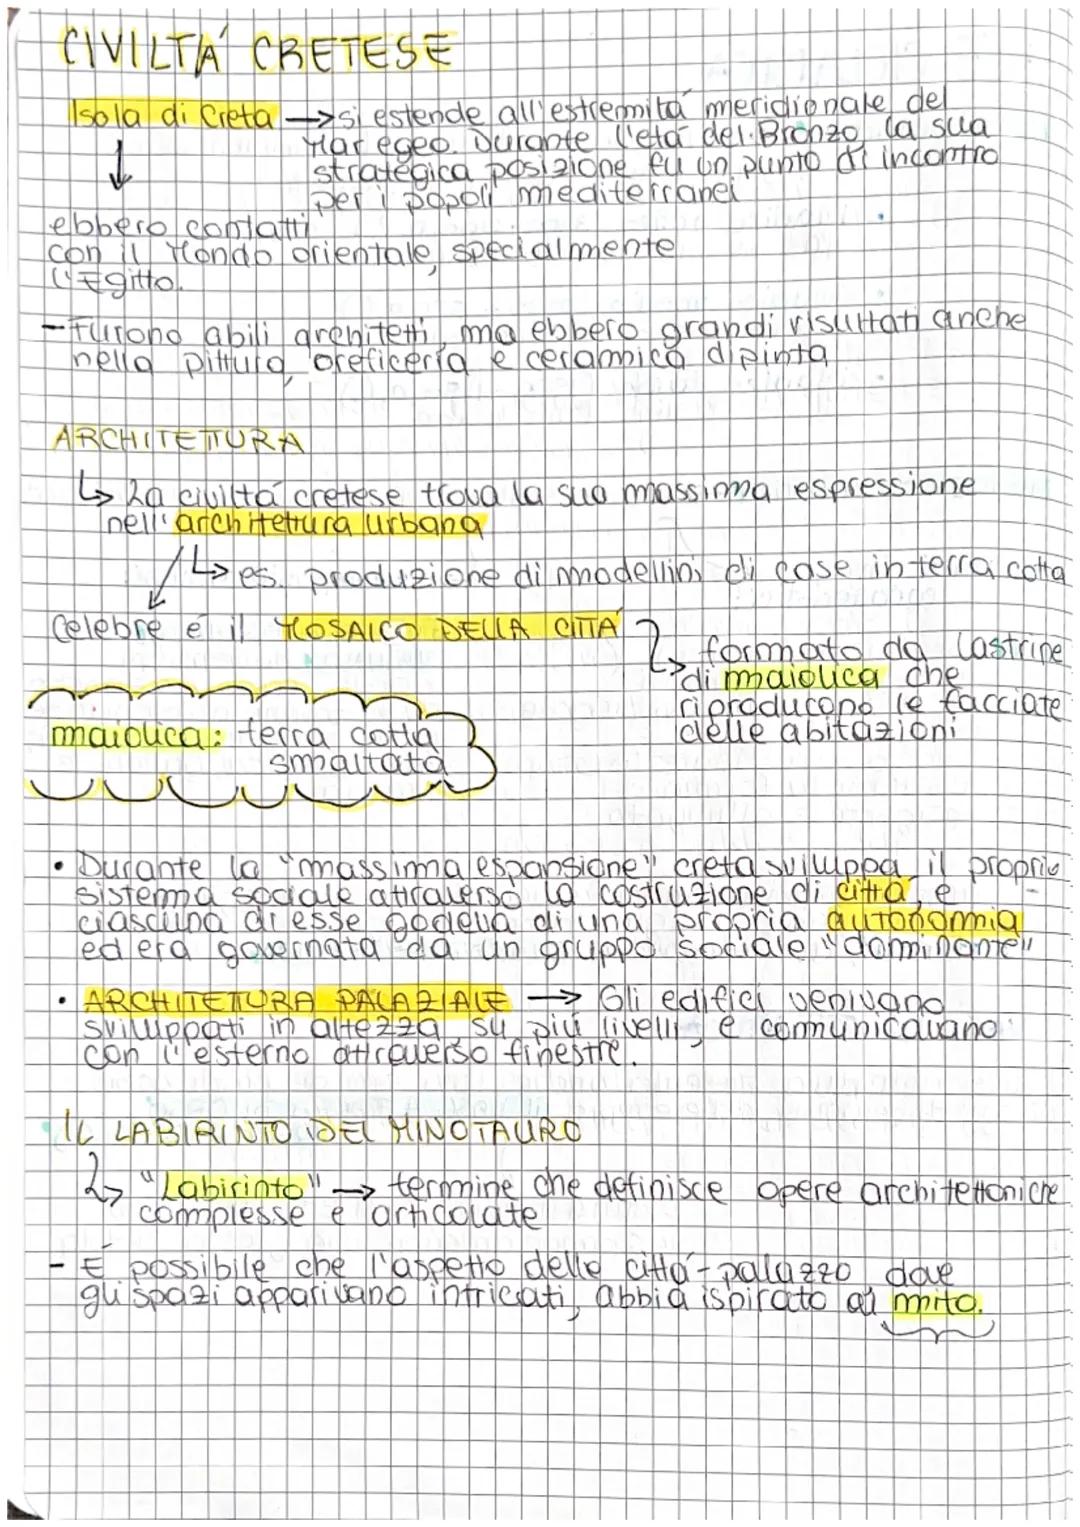 CIVILTÁ CRETESE
Isola di Creta → si estende all'estremitá meridionale del
Mar egeo. Durante l'etá del Bronzo, la sua
strategica posizione fu un punto di incontro
per i popoli mediterranei
↓
ebbero contatti
con il Mondo orientale, specialmente
l'Egitto.
- Furono abili architetti, ma ebbero grandi risultati anche
nella pittura, oreficeria e ceramica dipinta
ARCHITETTURA
↳ La civiltá cretese trova la sua massima espressione
nell'architettura urbana
↳ es. produzione di modellini di case in terra cotta
Celebre é il MOSAICO DELLA CITTÁ
↳ formato da lastrine
di maiolica che
riproducono le facciate
delle abitazioni
maiolica: terra cotta
smaltata
• Durante la "massima espansione" creta sviluppa il proprio
sistema sociale attraverso la costruzione di cittá, e
ciascuna di esse godeva di una propria autonomia
ed era governata da un gruppo sociale "dominante"
• ARCHITETTURA PALAZIALE → Gli edifici venivano
sviluppati in altezza, su piú livelli, e comunicavano
con l'esterno attraverso finestre.
IL LABIRINTO DEL MINOTAURO
↳ "Labirinto" → termine che definisce opere architettoniche
complesse e articolate
- É possibile che l'aspetto delle cittá-palazzo, dove
gli spazi apparivano intricati, abbia ispirato al mito.